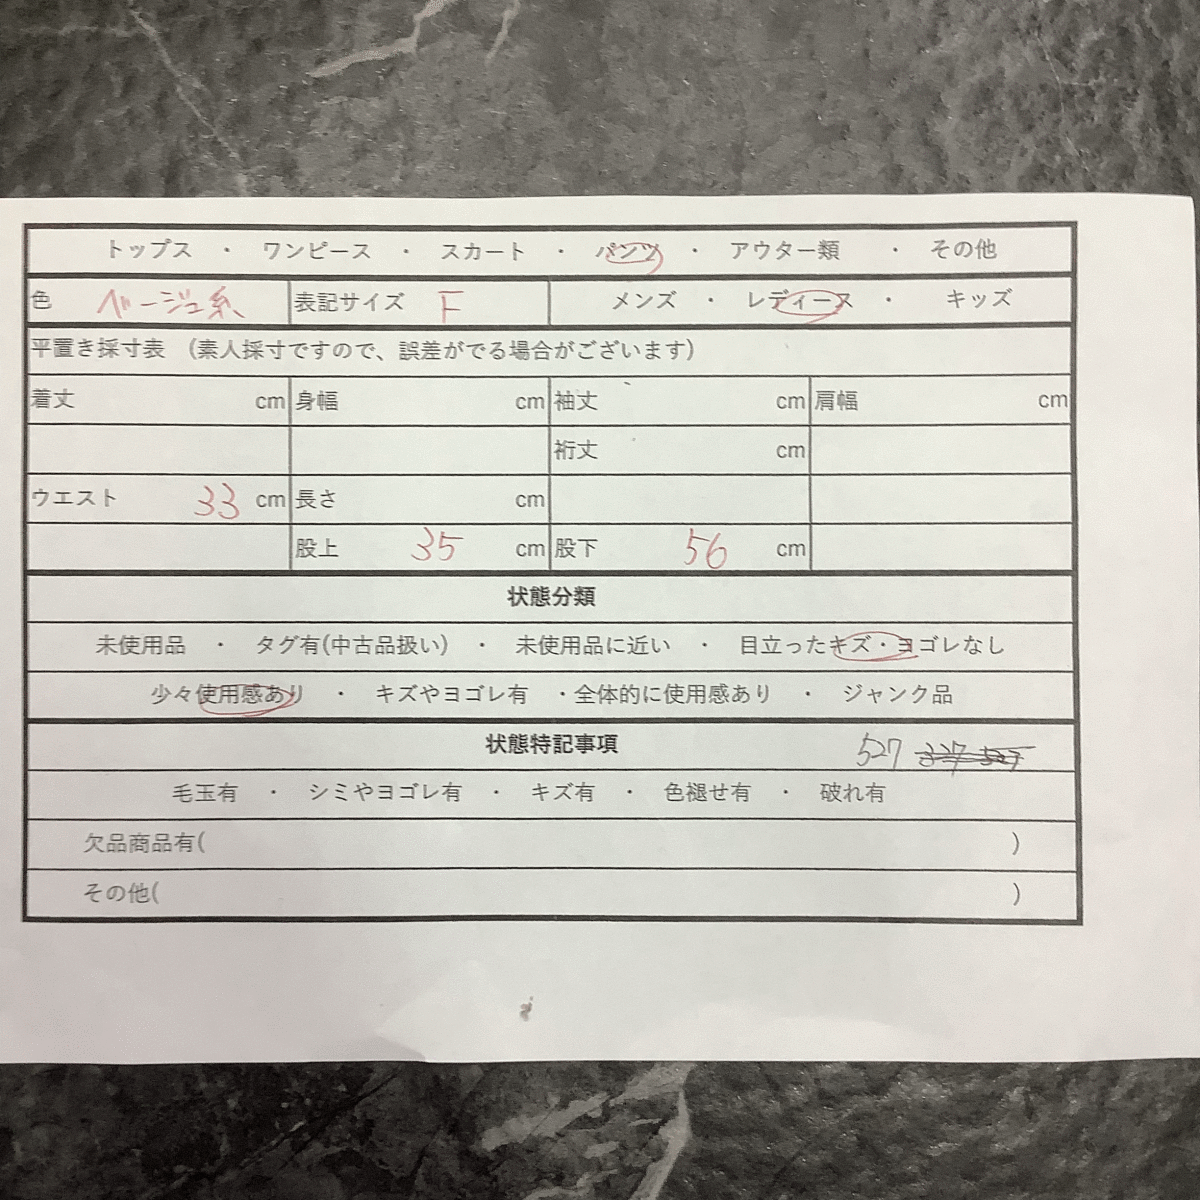 トップス ・ ワンピース ・ スカート ・ パンツ ・ アウター類 ・ その他
色 ベージュ系 表記サイズ F メンズ ・ レディース ・ キッズ
平置き採寸表 (素人採寸ですので、誤差がでる場合がございます)
着丈 cm 身幅 cm 袖丈 cm 肩幅 cm
裄丈 cm
ウエスト 33 cm 長さ cm
股上 35 cm 股下 56 cm
状態分類
未使用品 ・ タグ有(中古品扱い) ・ 未使用品に近い ・ 目立ったキズ・ヨゴレなし
少々使用感あり ・ キズやヨゴレ有 ・全体的に使用感あり ・ ジャンク品
状態特記事項 527
毛玉有 ・ シミやヨゴレ有 ・ キズ有 ・ 色褪せ有 ・ 破れ有
欠品商品有( )
その他( )